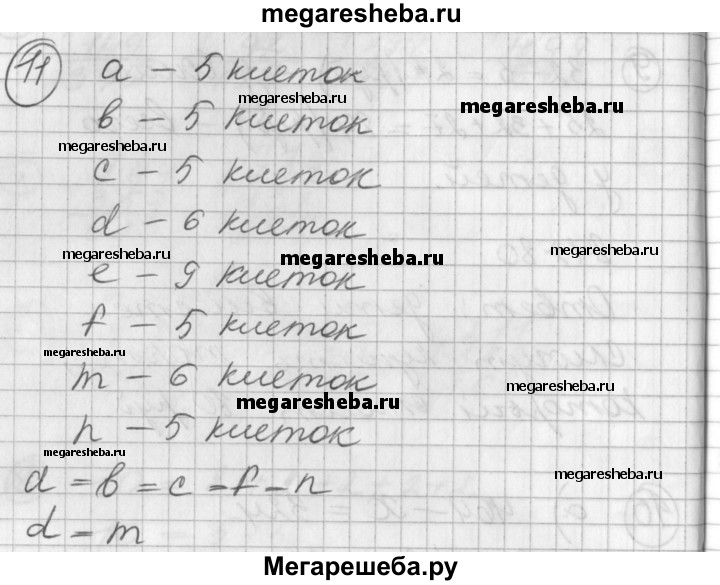 megaresheba.ru
11
a – 5 клеток
megaresheba.ru
megaresheba.ru
в – 5 клеток
megaresheba.ru
c – 5 клеток
d – 6 клеток
megaresheba.ru
megaresheba.ru
e – 9 клеток
f – 5 клеток
megaresheba.ru
m – 6 клеток
megaresheba.ru
megaresheba.ru
n – 5 клеток
megaresheba.ru
megaresheba.ru
d = в = c = f = n
d = m
Мегарешеба.ру